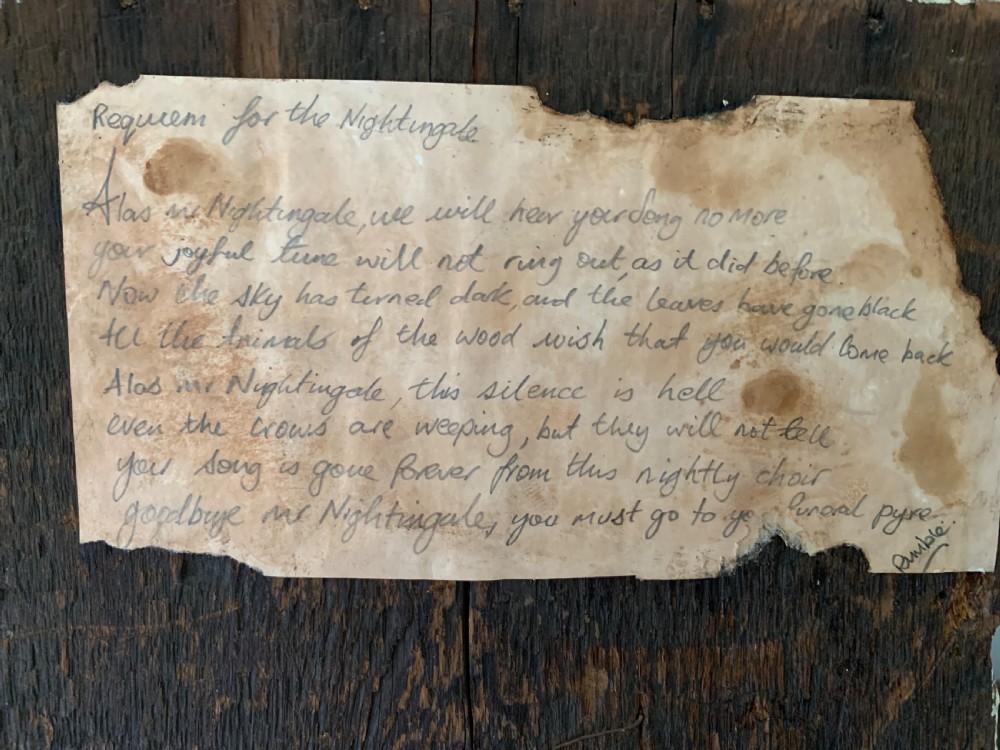 Requiem for the Nightingale
Alas mr Nightingale, we will hear your song no more
your joyful tune will not ring out, as it did before.
Now the sky has turned dark, and the leaves have gone black
All the Animals of the wood wish that you would come back
Alas mr Nightingale, this silence is hell
even the crows are weeping, but they will not tell
your song is gone forever from this nightly choir
goodbye mr Nightingale, you must go to funeral pyre